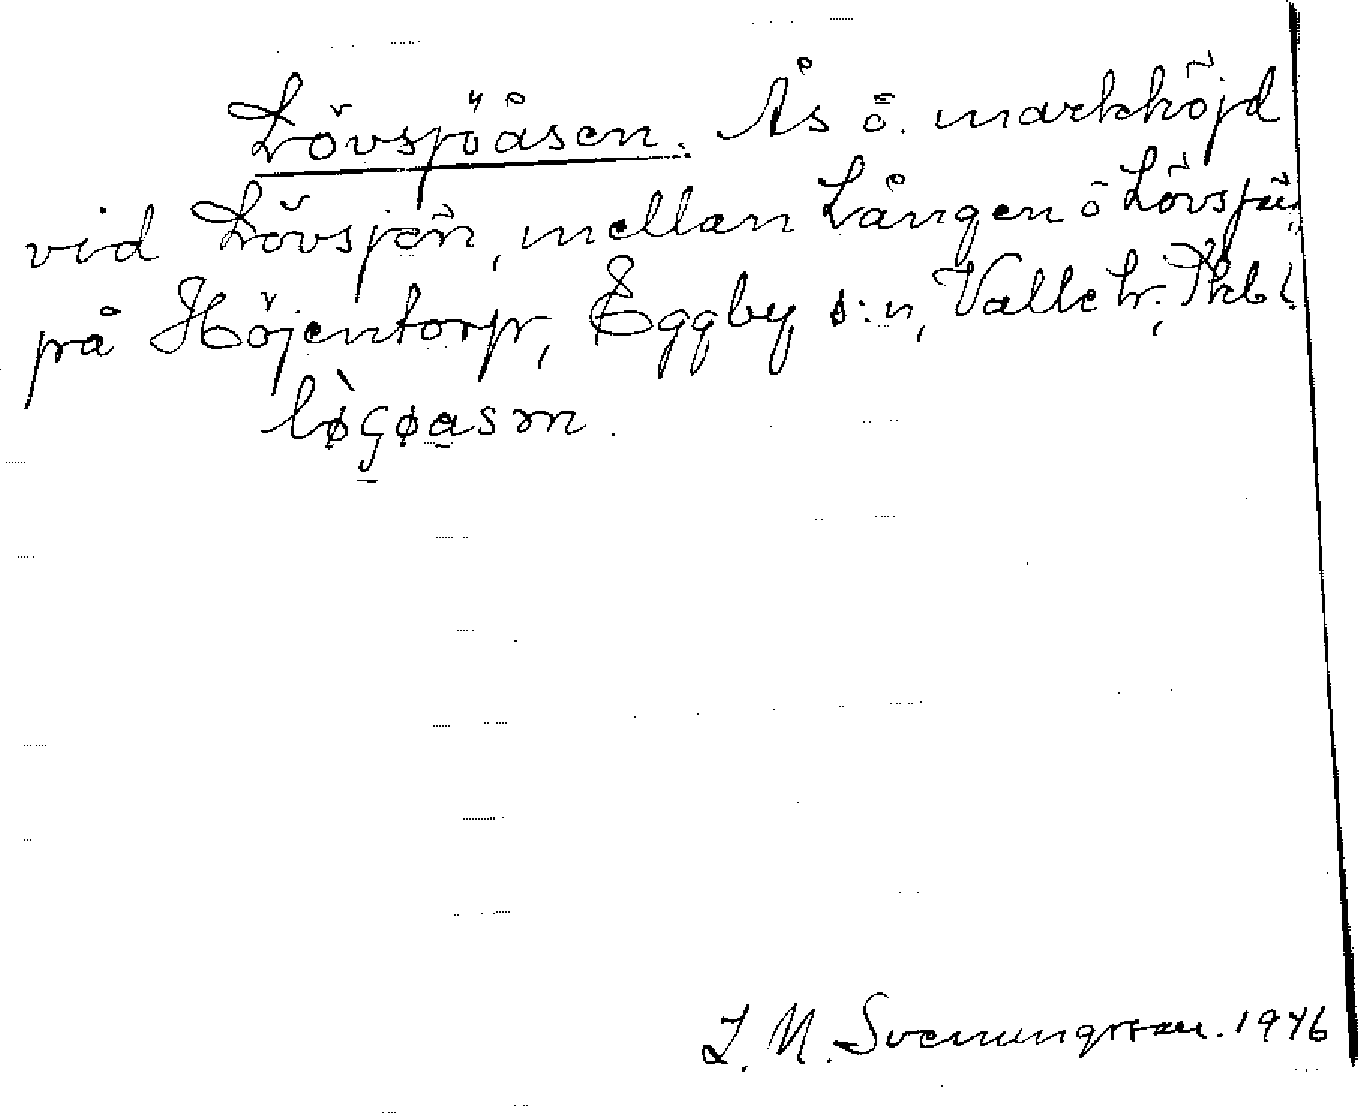 Lövsjöåsen. Ås ö. markhöjd
vid Lövsjön, mellan Lången ö Lövsjön,
på Höjentorp, Eggby s:n, Valle hr. Skbl.
lø̀ꞔøasm.
L. M. Svenungsson. 1946